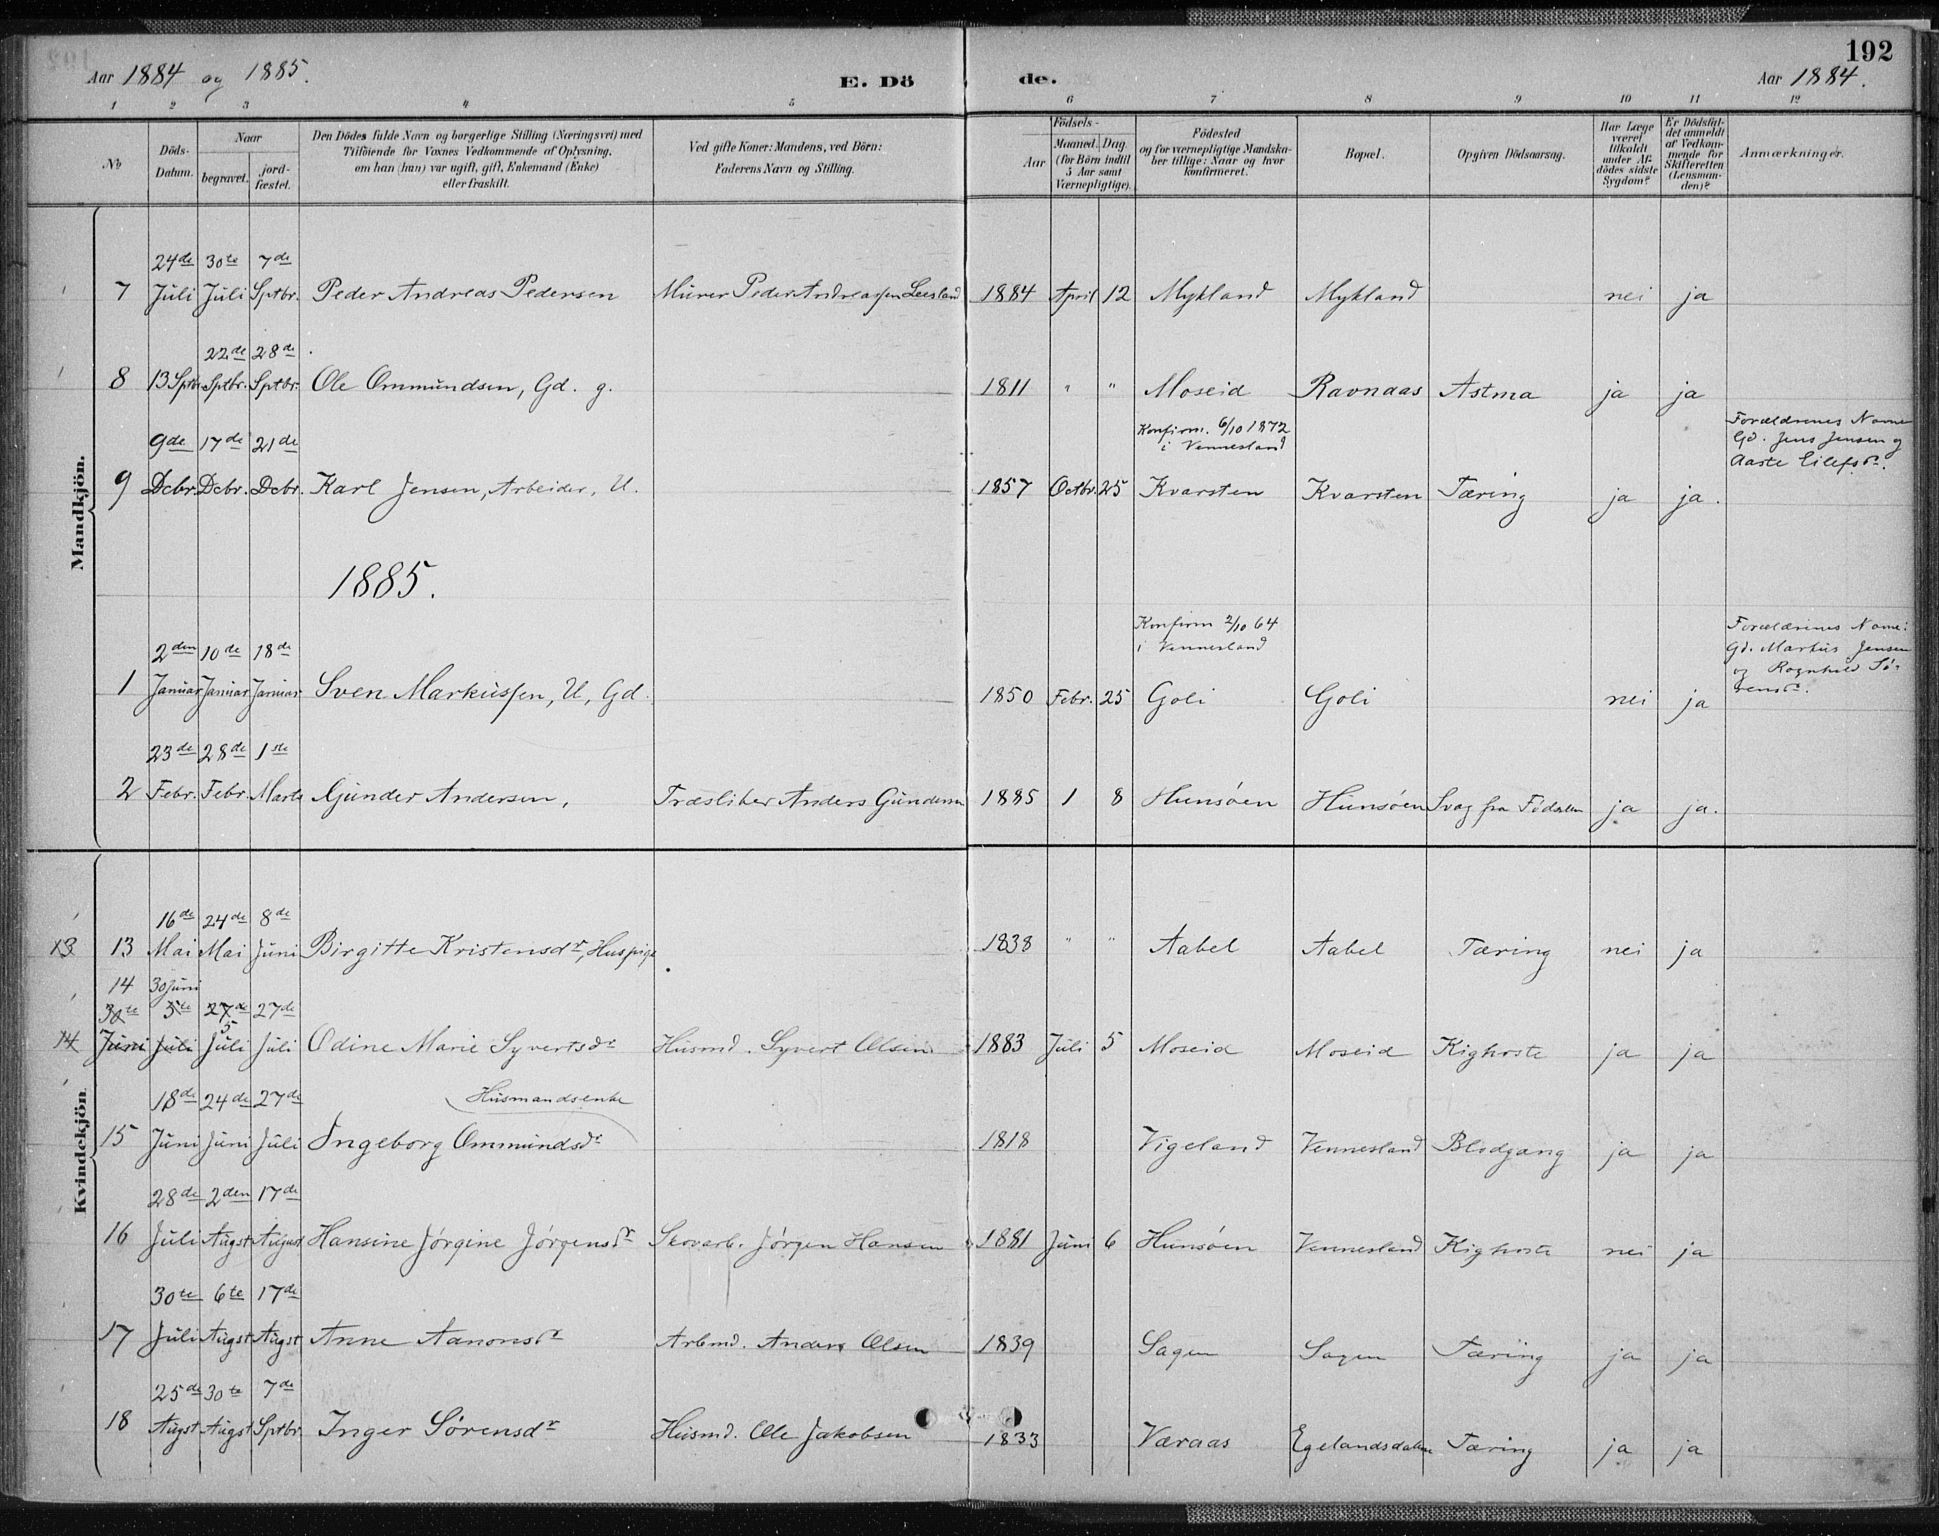 192
Aar 1884 og 1885.
E. Dö de.
Aar 1884.
1 2 3 4 5 6 7 8 9 10 11 12
No
Döds-Datum.
Naar
begravet.
jord-fæstet.
Den Dödes fulde Navn og borgerlige Stilling (Næringsvei) med
Tilföiende for Voxnes Vedkommende af Oplysning,
om han (hun) var ugift, gift, Enkemand (Enke)
eller fraskilt.
Ved gifte Koner: Mandens, ved Börn:
Faderens Navn og Stilling.
Födsels-
Aar
Maaned. Dag
(for Börn indtil
5 Aar samt
Værnepligtige).
Födested
og for værnepligtige Mandska-
ber tillige: Naar og hvor
konfirmeret.
Bopæl.
Opgiven Dödsaarsag.
Har Læge
været
tilkaldt
under Af-
dödes sidste
Sygdom?
Er Dödsfal-
det anmeldt
af Vedkom-
mende for
Skifteretten
(Lensman-
den)?
Anmærkninger.
Mandkjön.
24de 30te 7de
7 Juli Juli Sptbr. Peder Andreas Pedersen Murer Peder Andreassen Leesland 1884 April 12 Mykland Mykland nei ja
22de 28de
8 13 Sptbr. Sptbr. Sptbr. Ole Ommundsen, Gd. g. 1811 " " Moseid Ravnaas Astma ja ja
9de 17de 21de Konfirm. 6/10 1872
i Vennesland
Forældrenes Navne
Gd. Jens Jensen og
Aaste Eilefsdr.
9 Debr. Debr. Debr. Karl Jensen, Arbeider, U. 1857 Octbr. 25 Kvarsten Kvarsten Tæring ja ja.
1885.
2den 10de 18de Konfirm 2/10 64
i Vennesland
Forældrenes Navne:
Gd. Markus Jensen
og Rognhild Sö-
rensdr.
1 Januar Januar Januar Sven Markussen, U, Gd. 1850 Febr. 25 Goli Goli nei ja
23de 28de 1ste
2 Febr. Febr. Marts Gunder Andersen, Træsliber Anders Gundersen 1885 1 8 Hunsöen Hunsöen Svag fra Födselen ja ja.
Kvindekjön.
16de 24de 8de
13 13 Mai Mai Juni Birgitte Kristensdr, Huspige 1838 " " Aabel Aabel Tæring nei ja
14 30 juni
30te 5te 27de 27de
5
14 Juni Juli Juli Juli Odine Marie Syvertsdr Husmd. Syvert Olsen 1883 Juli 5 Moseid Moseid Kighoste ja ja
18de 24de 27de Husmandsenke
15 Juni Juni Juli Ingeborg Ommundsdr 1818 Vigeland Vennesland Blodgang ja ja
28de 2den 17de
16 Juli Augst August Hansine Jörgine Jörgensdr Skovarb. Jörgen Hansen 1881 Juni 6 Hunsöen Vennesland Kighoste nei ja
30te 6te 17de
17 Juli Augst Augst Anne Aanonsdr Arbmd. Anders Olsen 1839 Sagen Sagen Tæring ja ja
25de 30te 7de
18 Augst Augst Sptbr. Inger Sörensdr Husmd. Ole Jakobsen 1833 Væraas Egelandsdalen Tæring ja ja